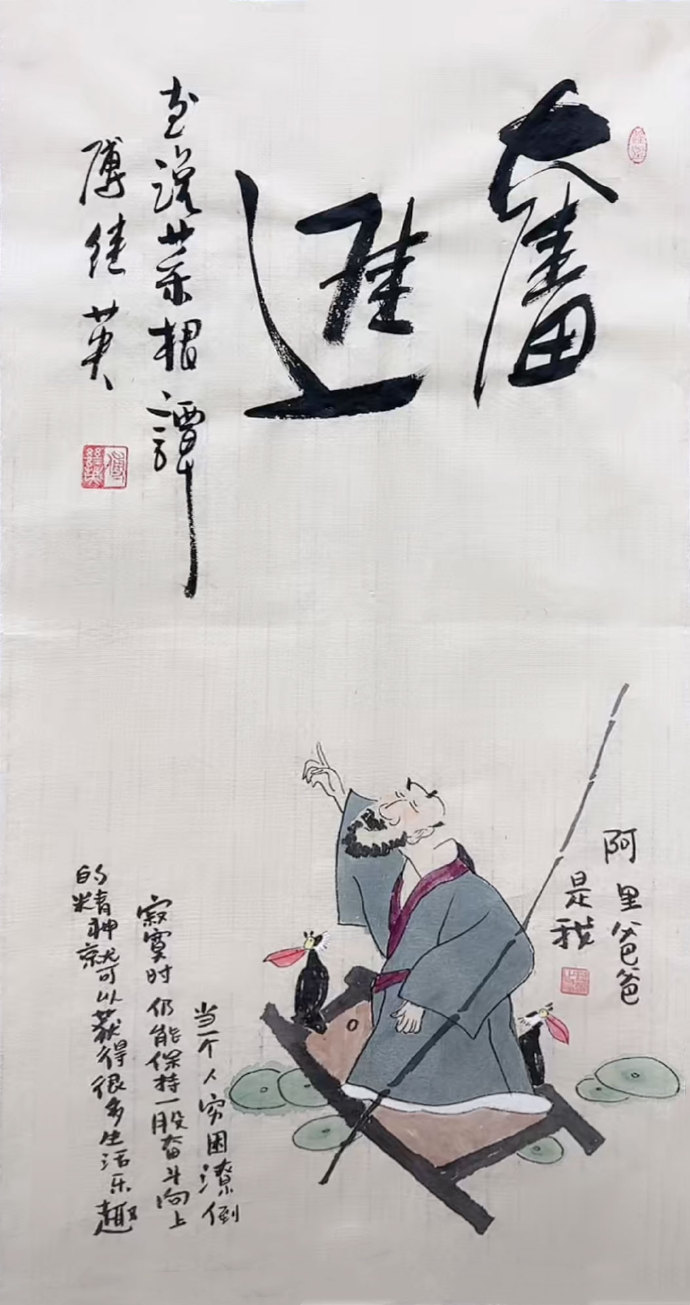 奮進
画说菜根譚
傅佳英
阿里爸爸
是我
当一个人穷困潦倒
寂寞时仍能保持一股奋斗向上
的精神就可以获得很多生活乐趣